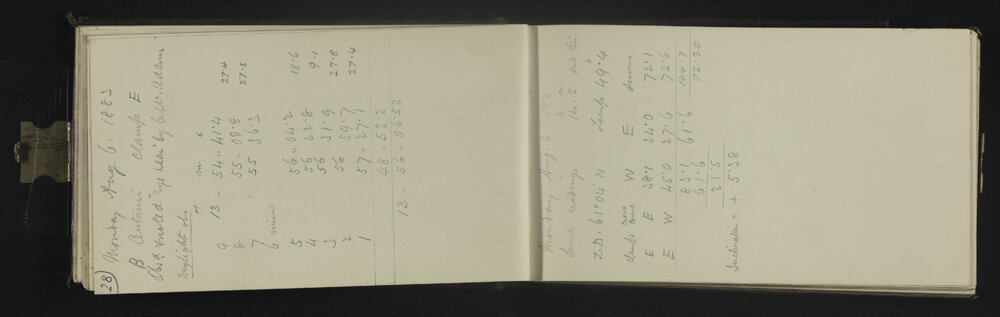 28) Monday Aug 6. 1883
β Centauri Clamp E
Obsd & noted "Eye & ear" by C.W. Adams.
Daylight obs
H m s
9 13 .. 54 .. 41.4 27.4
8 55 .. 08.8 27.5
7 55 36.3
6 miss
5 56 .. 04.2 18.6
4 56 22.8 9.1
3 56 31.9 27.8
2 56 59.7 27.4
1 57 .. 27.1
48 .. 52.2
13 .. 56 .. 06.52
Monday Aug. 6. 1883
Level readings 14.5 Sid time
Z.D. 61° 04' N Temp 49°.4
Clamp W E Sums
E E 38.1 34.0 72.1
E W 45.0 27.6 72.6
83.1 61.6 144.7
61.6 72.35
21.5
Inclination = + 5.38